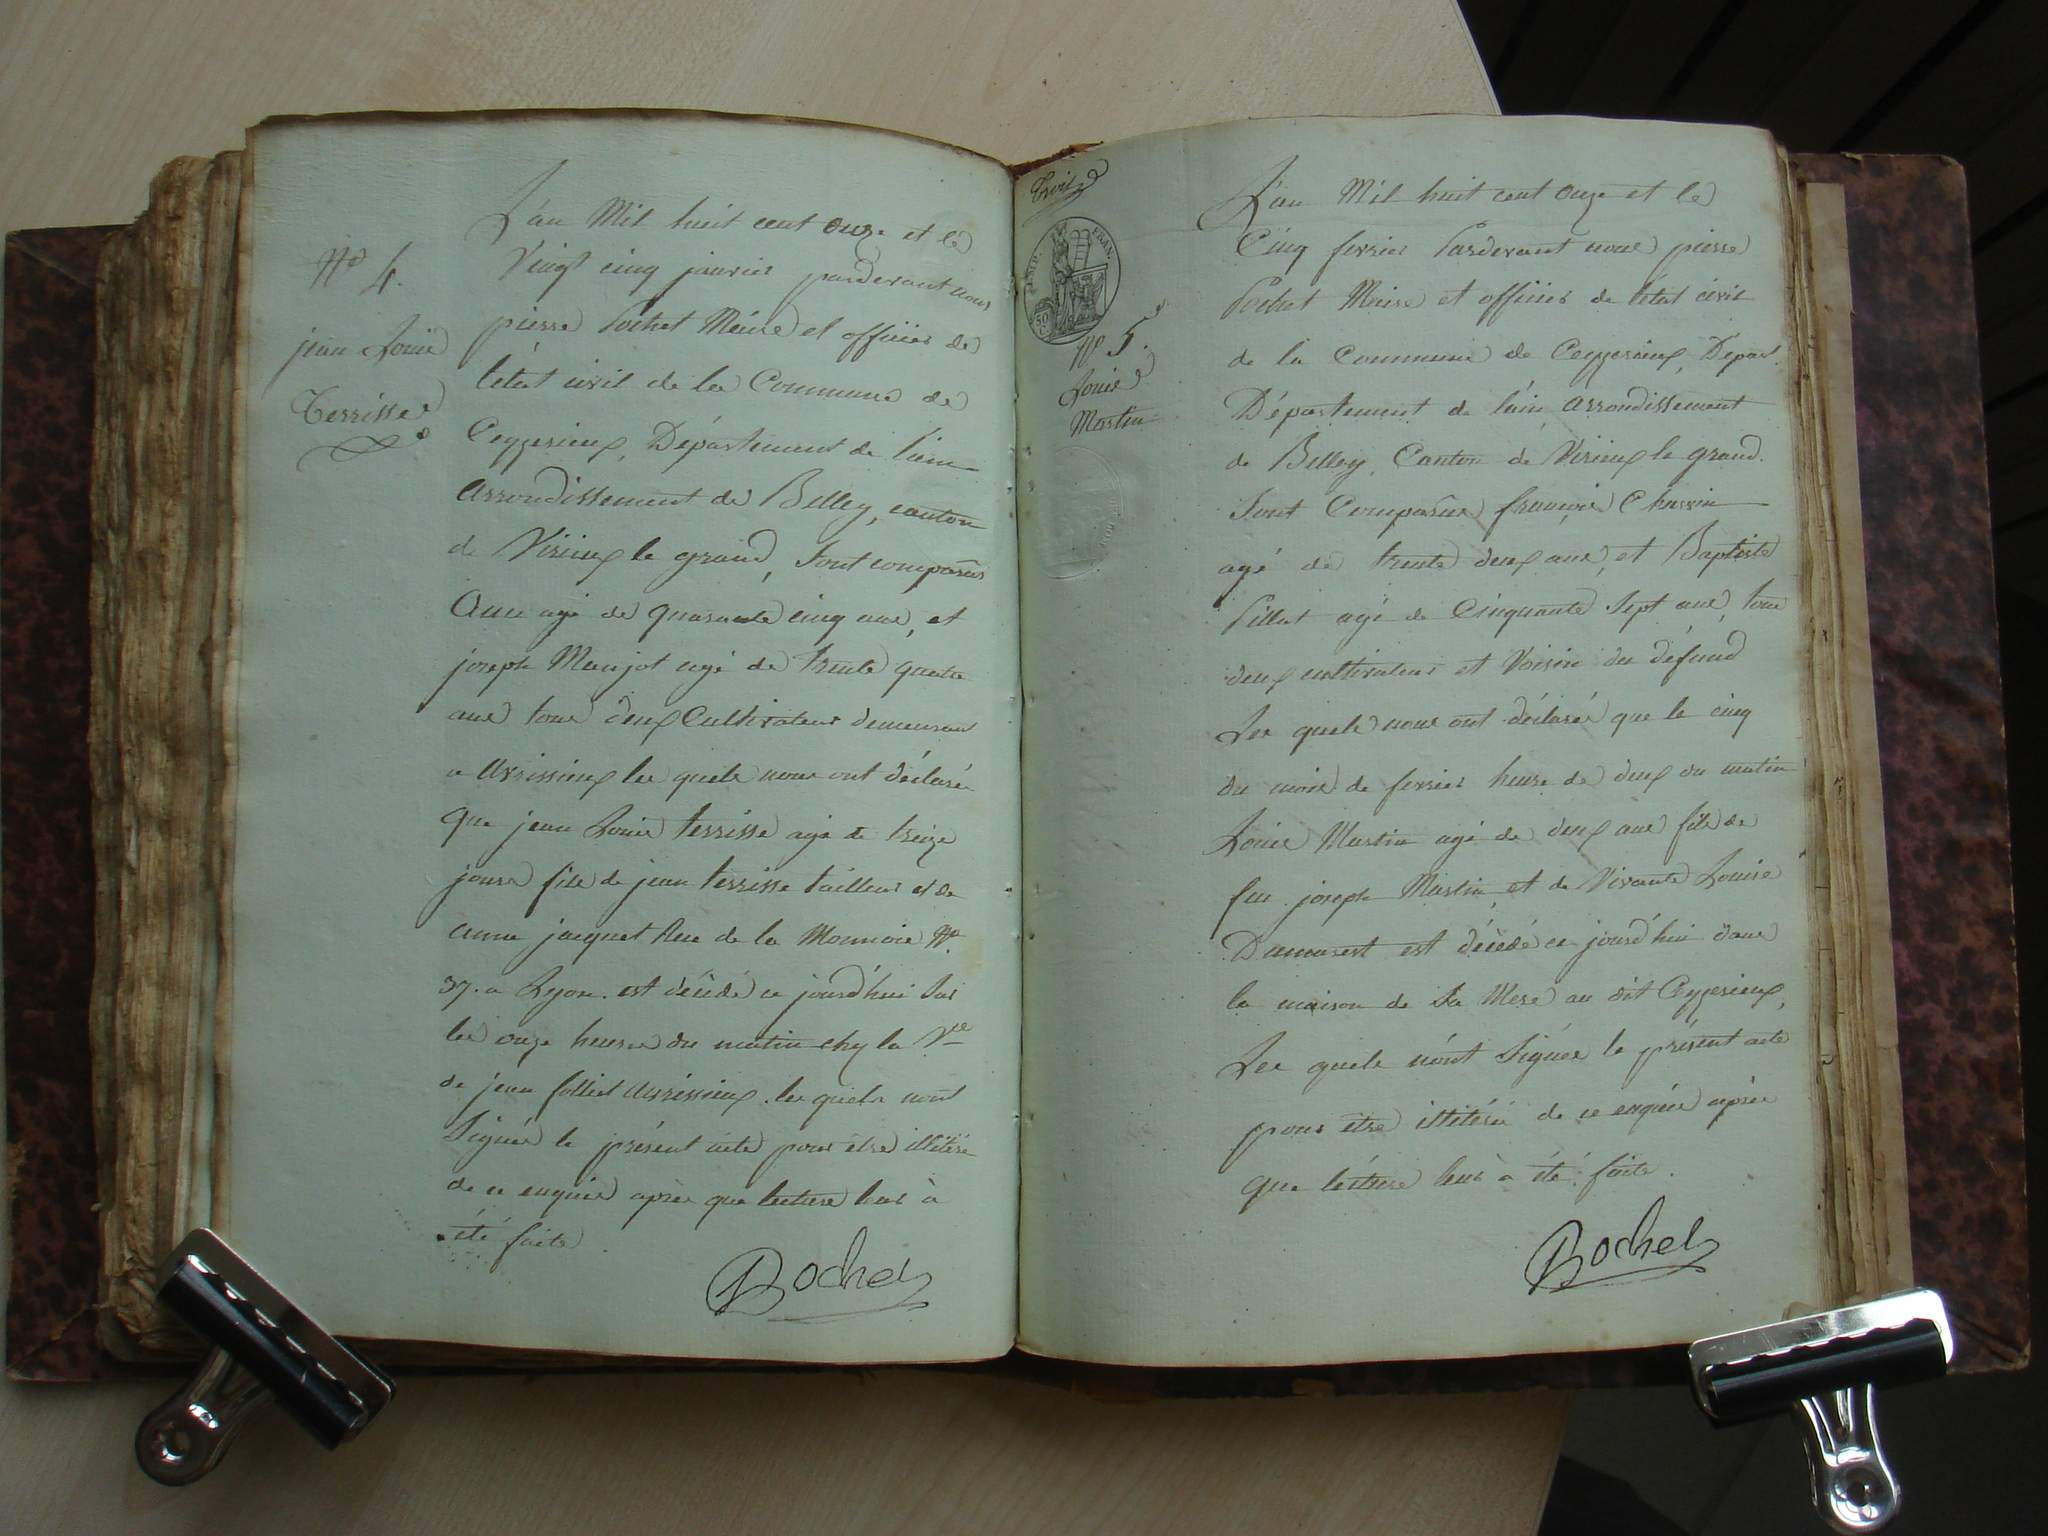 N° 4.
jean Louis
Terrisse
L'an Mil huit cent onze et le
Vingt cinq janvier pardevant nous
pierre Pochet Maire et officier de
létat civil de la Commune de
Ceyzerieux, Département de l'ain
arrondissement de Belley, canton
de Virieux le grand, Sont comparus
agé de quarante cinq ans, et
joseph Maujot agé de trente quatre
ans tous deux Cultivateur demeurant
a Avrissieux les quels nous ont déclaré
que jean Louis terrisse agé de treize
jours fils de jean terrisse tailleur et de
anne jacquet Rue de la Monnoie N°
37. a Lyon. est décédé ce jourd'hui Sur
les onze heures du matin chez la Vve
de jean follict Avrissieux. les quels nont
Signés le présent acte pour etre illitéré
de ce enquis après que lecture leur à
été faite.
Pochet
Trois
EMP. FRAN.
50
N° 5.
Louis
Martin
L'an Mil huit cent Onze et le
Cinq fevrier Pardevant nous pierre
Pochet Maire et officier de l'état civil
de la Commune de Ceyzerieux, Depart.
Département de l'ain arrondissement
de Belley, Canton de Virieux le grand.
Sont Comparus françois Chassin
agé de trente deux ans, et Baptiste
Pillat agé de Cinquante Sept ans, tous
deux cultivateurs et Voisin du défund
Les quels nous ont déclarés que le cinq
du mois de fevrier heure de deux du matin
Louis Martin agé de deux ans fils de
feu joseph Martin, et de Vivante Louise
Dumarest est décédé ce jourd'hui dans
la maison de Sa Mere au dit Ceyzerieux,
Les quels n'ont Signés le présent acte
pour être illitéré de ce enquis après
que lécture leur à été faite.
Pochet